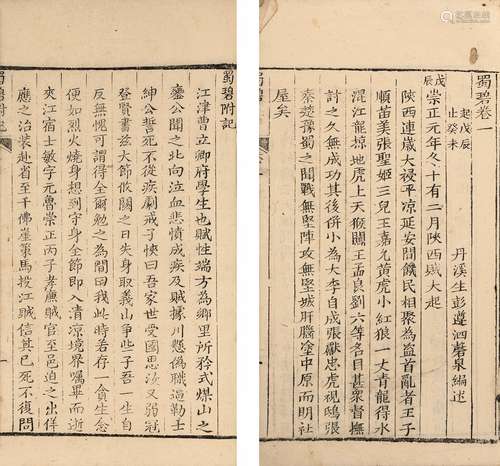 蜀碧卷一
起戊辰
止癸未
丹溪生彭遵泗磬泉編述
戊辰
崇正元年冬十有二月陝西賊大起
陝西連歲大祲平凉延安間饑民相聚為盜首亂者王子
順苗美張聖姬三兒王嘉允黃虎小紅狼一丈青龍得水
混江龍掠地虎上天猴閻王孟良劉六等名目甚衆督撫
討之久無成功其後併小為大李自成張獻忠虎視鴟張
秦楚豫蜀之間戰無堅陣攻無堅城肝腦塗中原而明社
屋矣
蜀碧
蜀碧附記
江津曹立卿府學生也賦性端方為鄉里所矜式煤山之
變公聞之北向泣血悲憤成疾及賊據川懸偽職逼勒士
紳公誓死不從疾劇戒子恢曰吾家世受國恩汝又弱冠
登賢書茲大節攸關之日失身取義止爭些子吾一生自
反無愧可謂得全爾勉之為間曰我此時若存一貪生念
便如烈火燒身想到守身全節即入清凉境界囑畢而逝
夾江宿士敏字元魯崇正丙子孝廉賊官至邑迫之出佯
應之治裝赴省至千佛崖策馬投江賊信其已死不復問
蜀碧附記